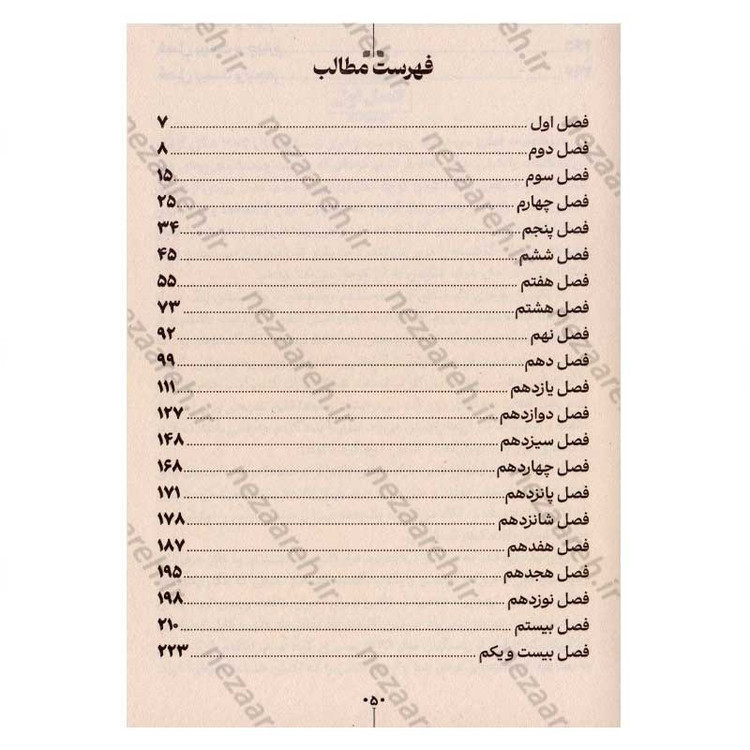 فهرست مطالب
فصل اول ........ ۷
فصل دوم ........ ۸
فصل سوم ........ ۱۵
فصل چهارم ........ ۲۵
فصل پنجم ........ ۳۴
فصل ششم ........ ۴۵
فصل هفتم ........ ۵۵
فصل هشتم ........ ۷۳
فصل نهم ........ ۹۲
فصل دهم ........ ۹۹
فصل یازدهم ........ ۱۱۱
فصل دوازدهم ........ ۱۲۷
فصل سیزدهم ........ ۱۴۸
فصل چهاردهم ........ ۱۶۸
فصل پانزدهم ........ ۱۷۱
فصل شانزدهم ........ ۱۷۸
فصل هفدهم ........ ۱۸۷
فصل هجدهم ........ ۱۹۵
فصل نوزدهم ........ ۱۹۸
فصل بیستم ........ ۲۱۰
فصل بیست و یکم ........ ۲۲۳
۰۵۰
nezaareh.ir